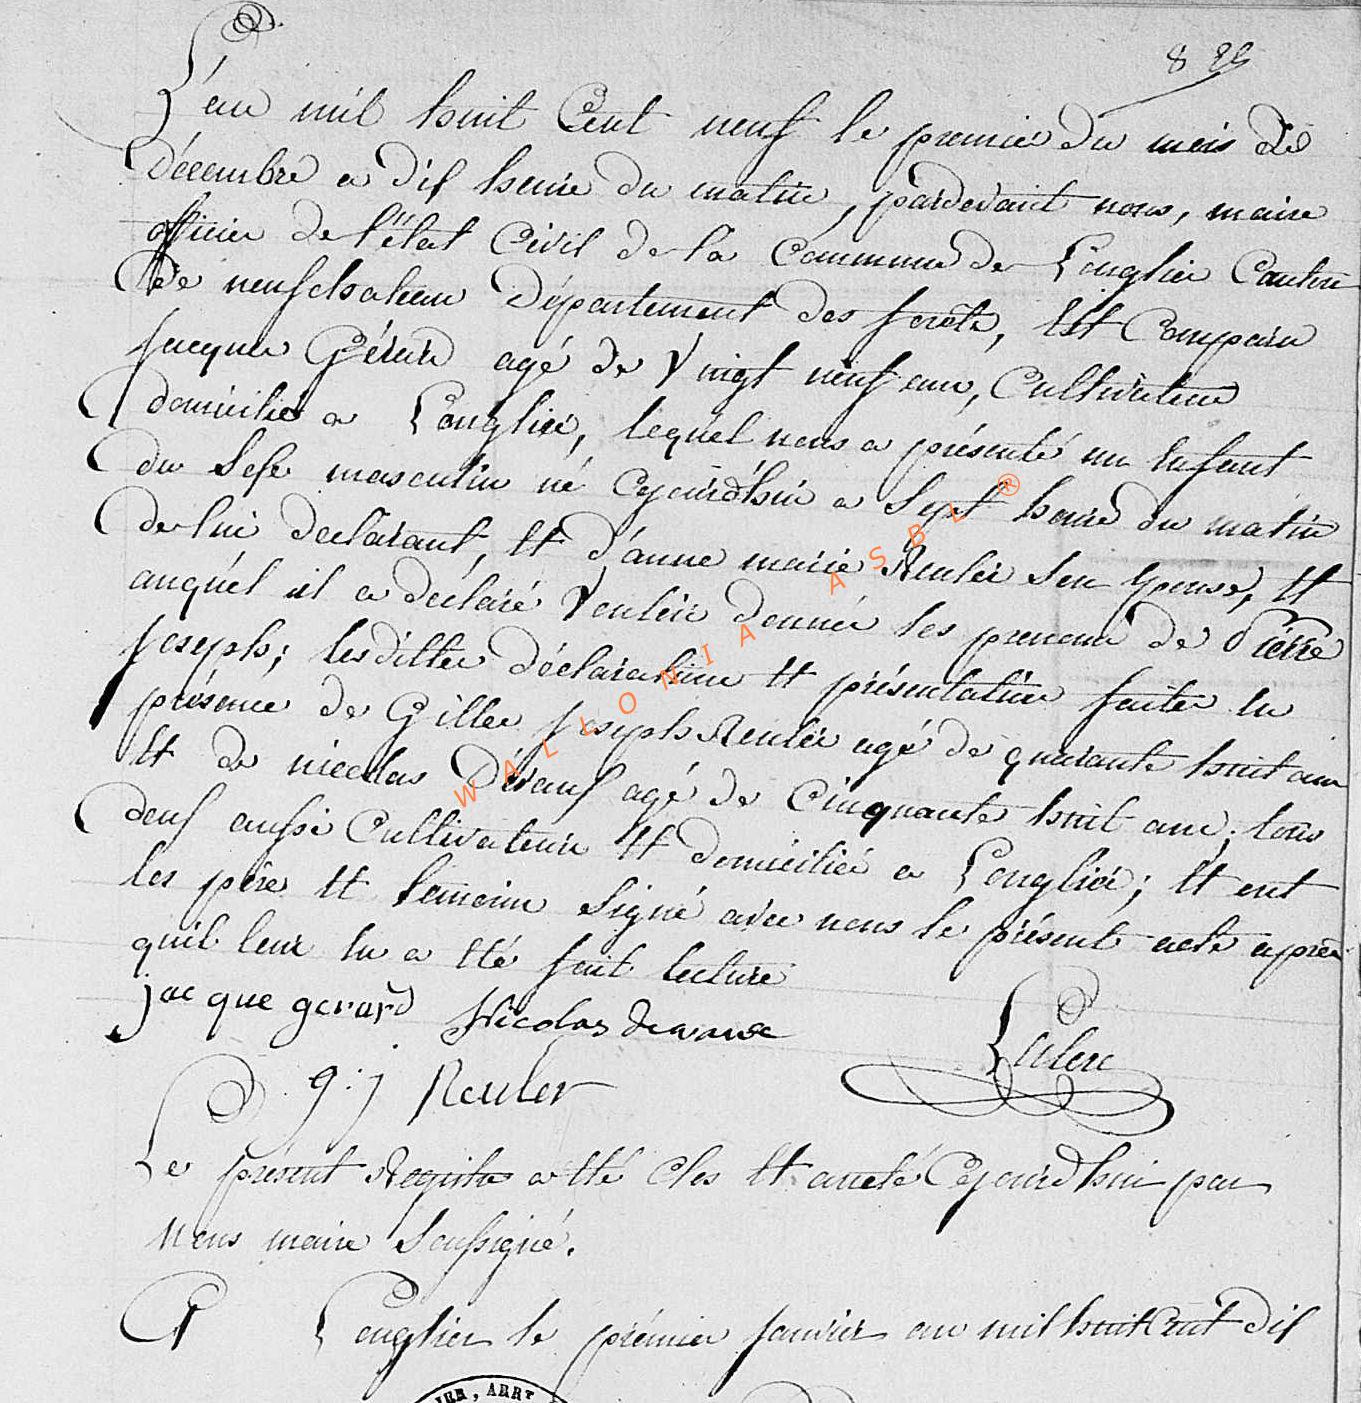 8 89
L'an mil huit Cent neuf le premier du mois de
décembre a dix heure du matin, pardevant nous, maire
officier de l'état Civil de la Commune de Longlier Canton
de neufchateau Département des forêts, Est Comparu
jacque Gérard agé de Vingt neuf ans, Cultivateur
domicilié a Longlier, lequel nous a présenté un Enfant
du Sexe masculin né Cejourd'hui a Sept heure du matin
de lui declarant, Et d'anne marie Reuler Son Epouse, Et
auquel il a déclaré Vouloir donner les prenom de Pierre
joseph; lesditte déclaration Et présentation faite En
présence de Gille joseph Reuler agé de quarante huit ans
Et de nicolas Devaux agé de Cinquante huit ans; tous
deux aussi Cultivateur Et domicilié a Longlier; Et ont
les père Et temoin Signé avec nous le présent acte après
quil leur En a Eté fait lecture
jacque gerard Nicolas devaux
Leclerc
g: j Reuler
Le présent Registre a Eté Clos Et arreté Cejourd'hui par
Nous maire Soussigné.
A Longlier le prémier Janvier an mil huit Cent Dix
IER, ARRT
WALLONIA ASBL ®